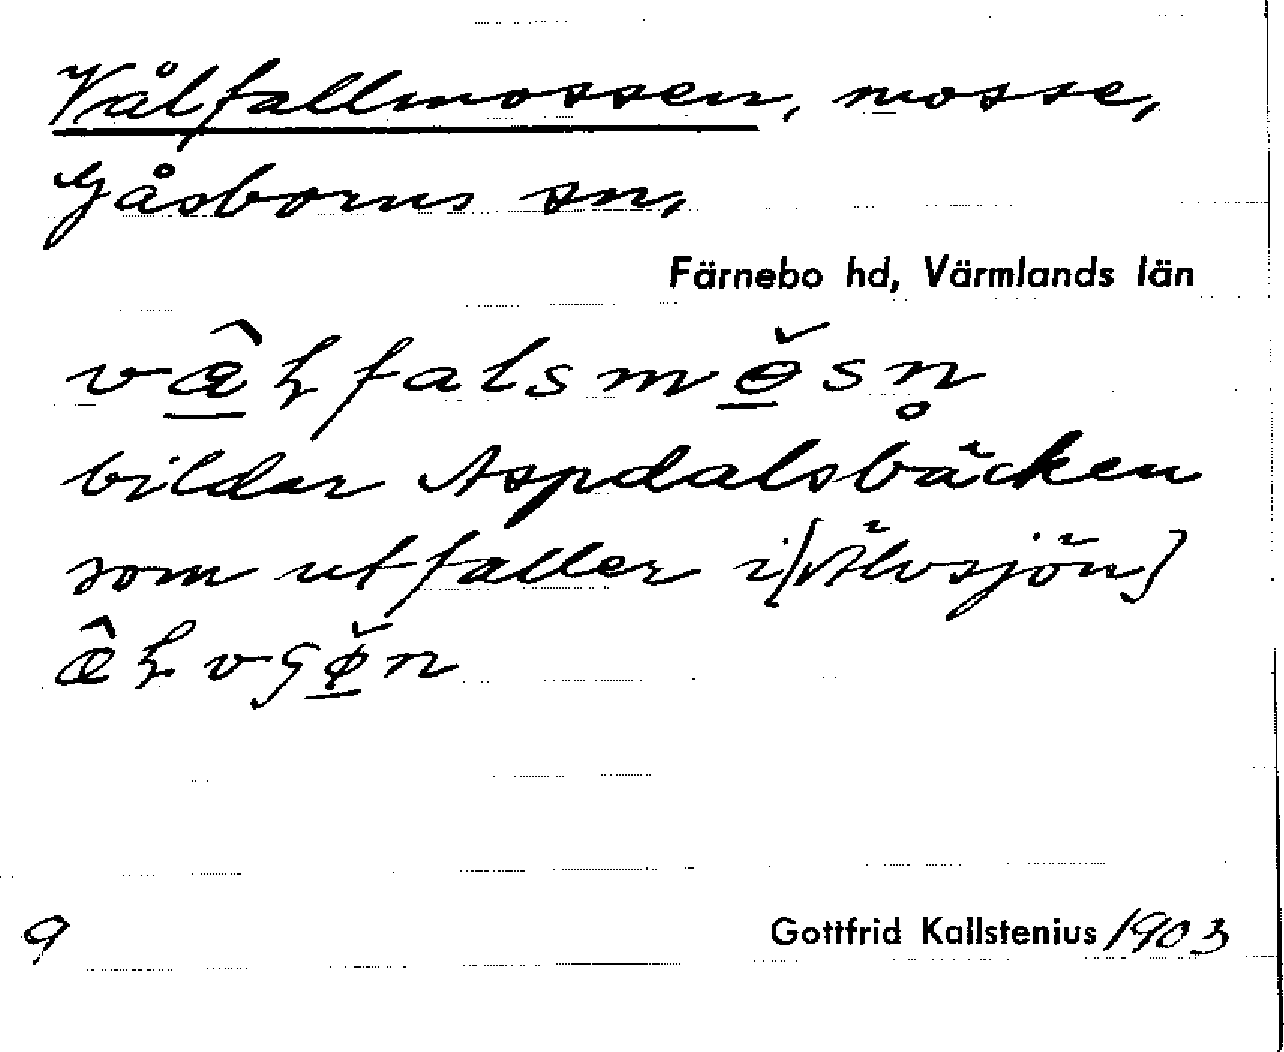 Vålfallmossen, mosse,
Gåsborns sn,
Färnebo hd, Värmlands län
bildar Aspdalsbäcken
som utfaller i [Älvsjön]
9
Gottfrid Kallstenius 1903